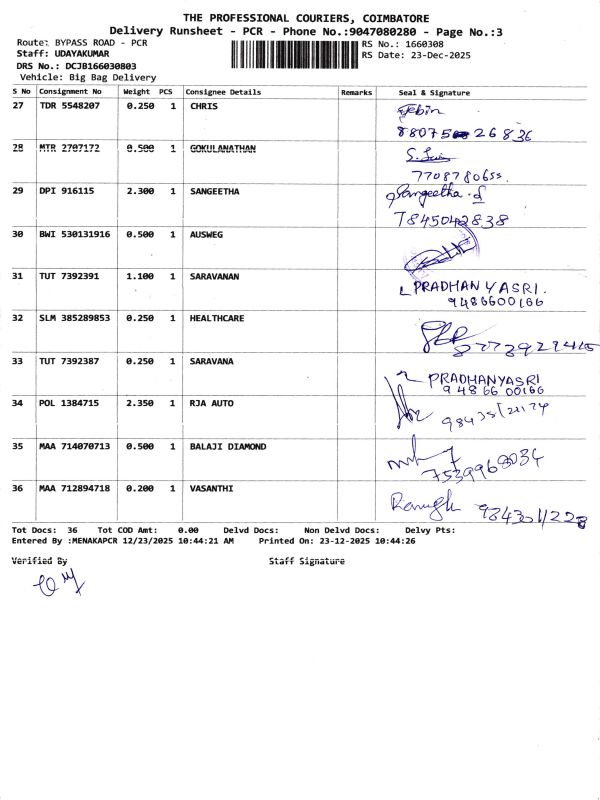 THE PROFESSIONAL COURIERS, COIMBATORE
Delivery Runsheet - PCR - Phone No.:9047080280 - Page No.:3
Route: BYPASS ROAD - PCR RS No.: 1660308
Staff: UDAYAKUMAR RS Date: 23-Dec-2025
DRS No.: DCJB166030803
Vehicle: Big Bag Delivery
S No Consignment No Weight PCS Consignee Details Remarks Seal & Signature
27 TDR 5548207 0.250 1 CHRIS
Jebin
88075 26836
28 MTR 2707172 0.500 1 GOKULANATHAN
7708780655.
29 DPI 916115 2.300 1 SANGEETHA Sangeetha.S
7845042838
30 BWI 530131916 0.500 1 AUSWEG
31 TUT 7392391 1.100 1 SARAVANAN PRADHANYASRI.
9486600166
32 SLM 385289853 0.250 1 HEALTHCARE
33 TUT 7392387 0.250 1 SARAVANA
PRADHANYASRI
9486600166
34 POL 1384715 2.350 1 RJA AUTO
35 MAA 714070713 0.500 1 BALAJI DIAMOND
7539968034
36 MAA 712894718 0.200 1 VASANTHI
Tot Docs: 36 Tot COD Amt: 0.00 Delvd Docs: Non Delvd Docs: Delvy Pts:
Entered By :MENAKAPCR 12/23/2025 10:44:21 AM Printed On: 23-12-2025 10:44:26
Verified By Staff Signature